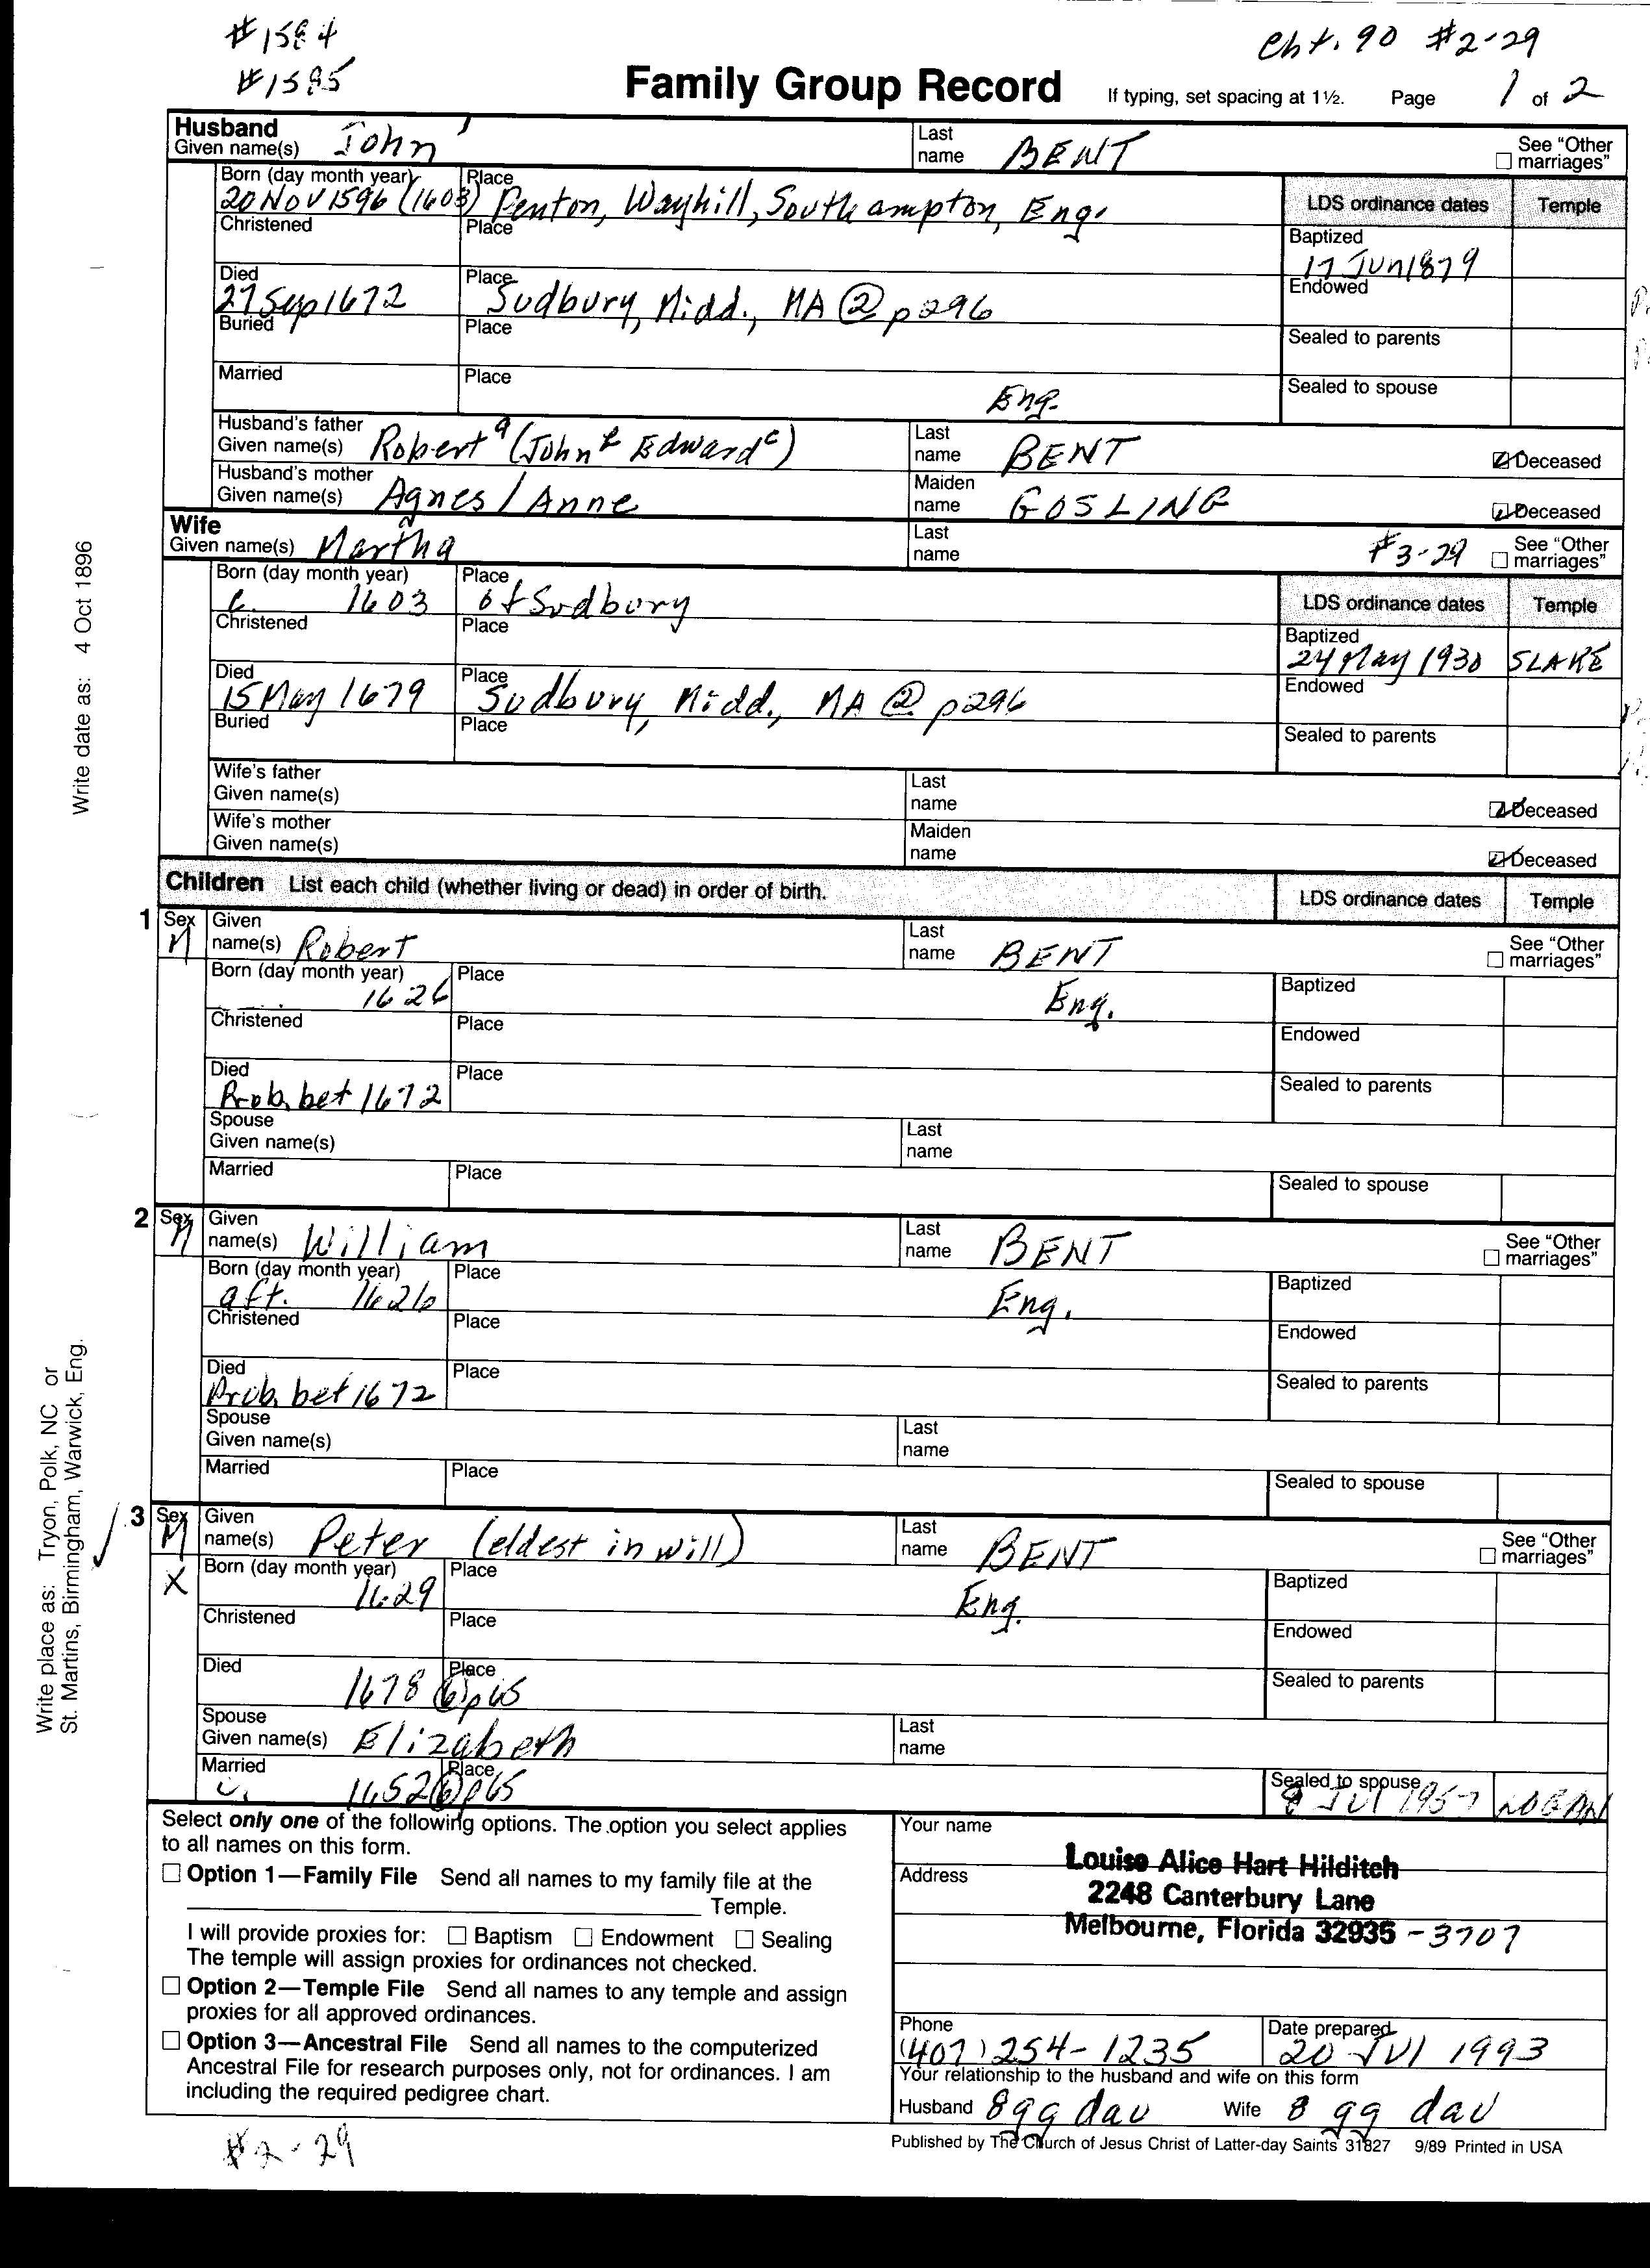 #1584
#1585
Cht. 90 #2-29
Family Group Record
If typing, set spacing at 1½. Page 1 of 2
Husband
Given name(s) John ¹ Last name BENT
See "Other marriages"
Born (day month year) Place
20 NOV 1596 (1603) Penton, Wayhill, Southampton, Eng.
LDS ordinance dates Temple
Christened Place
Baptized
17 Jun 1879
Died Place
27 Sep 1672 Sudbury, Midd., MA @ p296
Endowed
Buried Place
Sealed to parents
Married Place
Eng.
Sealed to spouse
Husband's father
Given name(s) Robert a (John b Edward c) Last name BENT
Deceased
Husband's mother
Given name(s) Agnes / Anne Maiden name GOSLING
Deceased
Wife
Given name(s) Martha Last name
#3-29
See "Other marriages"
Born (day month year) Place
c. 1603 of Sudbury
LDS ordinance dates Temple
Christened Place
Baptized
24 May 1930 SLAKE
Died Place
15 May 1679 Sudbury, Midd., MA ② p296
Endowed
Buried Place
Sealed to parents
Wife's father
Given name(s) Last name
Deceased
Wife's mother
Given name(s) Maiden name
Deceased
Children List each child (whether living or dead) in order of birth.
LDS ordinance dates Temple
1 Sex M Given name(s) Robert Last name BENT
See "Other marriages"
Born (day month year) Place
1626 Eng.
Baptized
Christened Place
Endowed
Died Place
Prob. bet 1672
Sealed to parents
Spouse
Given name(s) Last name
Married Place
Sealed to spouse
2 Sex M Given name(s) William Last name BENT
See "Other marriages"
Born (day month year) Place
aft. 1626 Eng.
Baptized
Christened Place
Endowed
Died Place
Prob. bet 1672
Sealed to parents
Spouse
Given name(s) Last name
Married Place
Sealed to spouse
3 Sex M Given name(s) Peter (eldest in will) Last name BENT
See "Other marriages"
X
Born (day month year) Place
1629 Eng.
Baptized
Christened Place
Endowed
Died Place
1678 ⑥ p65
Sealed to parents
Spouse
Given name(s) Elizabeth Last name
Married Place
c. 1652 ⑥ p65
Sealed to spouse
9 JUl 1957 LOGAN
Select only one of the following options. The option you select applies
to all names on this form.
Option 1—Family File Send all names to my family file at the
Temple.
I will provide proxies for: Baptism Endowment Sealing
The temple will assign proxies for ordinances not checked.
Option 2—Temple File Send all names to any temple and assign
proxies for all approved ordinances.
Option 3—Ancestral File Send all names to the computerized
Ancestral File for research purposes only, not for ordinances. I am
including the required pedigree chart.
Your name
Louise Alice Hart Hilditch
Address
2248 Canterbury Lane
Melbourne, Florida 32935 -3707
Phone
(407) 254-1235
Date prepared
20 JUl 1993
Your relationship to the husband and wife on this form
Husband 8 gg dau Wife 8 gg dau
Published by The Church of Jesus Christ of Latter-day Saints 31827 9/89 Printed in USA
#2-29
Write date as: 4 Oct 1896
Write place as: Tryon, Polk, NC or
St. Martins, Birmingham, Warwick, Eng.